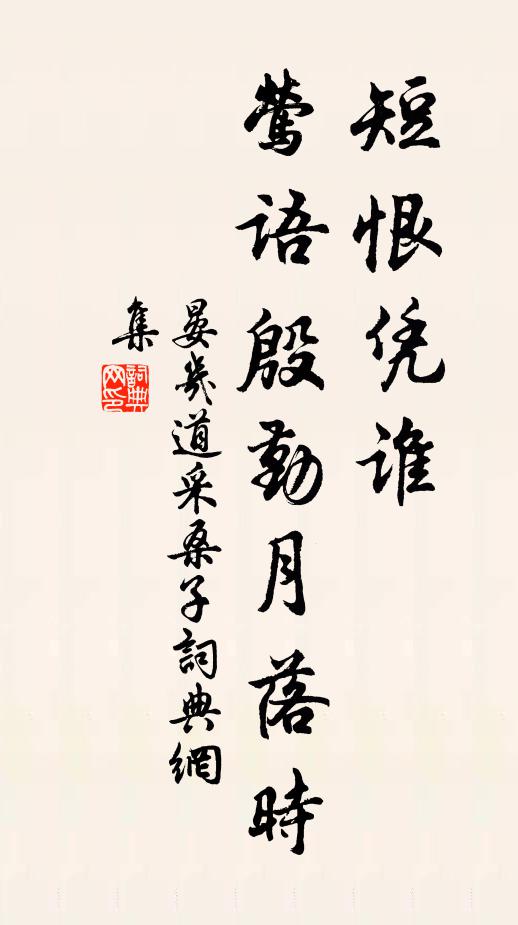 短恨凭谁
莺语殷勤月落時
晏幾道采桑子詞典網
集
詞典網印